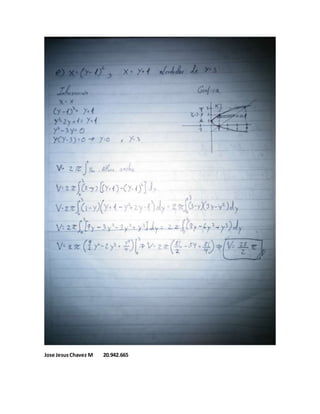 e) x=(y-1)², x=y+1 alrededor de y=3
Intersección Grafica
x=x
(y-1)²= y+1
y²-2y+1= y+1
y²-3y=0
y(y-3)=0 → y=0 , y=3
V= 2π∫
V=2π∫(3-y)[(y+1)-(y-1)²]dy
V=2π∫(3-y)(y+1-y²+2y-1)dy = 2π∫(3-y)(3y-y²)dy
V=2π∫[9y-3y²-3y²+y³]dy = 2π∫(9y-6y²+y³)dy
V=2π(9/2 y²-2y³+y⁴/4)|⇒ V=2π(81/2 -54+81/4) ⇒ V= 27/2 π
Jose Jesus Chavez M 20.942.665